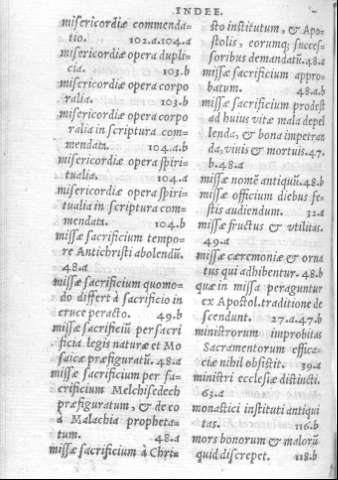 INDEE.
misericordiæ commenda-
tio. 102.a.104.a
misericordiæ opera dupli-
cia. 103.b
misericordiæ opera corpo
ralia. 103.b
misericordiæ opera corpo
ralia in scriptura com-
mendata. 104.a.b
misericordiæ opera spiri-
tualia. 104.a
misericordiæ opera spiri-
tualia in scriptura com-
mendata. 104.b
missæ sacrificium tempo-
re Antichristi abolendũ.
48.a
missæ sacrificium quomo-
do differt à sacrificio in
cruce peracto. 49.b
missæ sacrificiũ per sacri
ficia legis naturæ et Mo
saicæ præfiguratũ. 48.a
missæ sacrificium per sa-
crificium Melchisedech
præfiguratum, & de eo
à Malachia propheta-
tum. 48.a
missæ sacrificium à Chri-
sto institutum, & Apo-
stolis, eorumq; succes-
soribus demandatũ. 48.a
missæ sacrificium appro-
batum. 48.a.b
missæ sacrificium prodest
ad huius vitæ mala depel
lenda, & bona impetran
da, viuis & mortuis. 47.
b. 48.a
missæ nomẽ antiquũ. 48.b
missæ officium diebus fe-
stis audiendum. 32.a
missæ fructus & vtilitas.
49.a
missæ cæremoniæ & orna
tus qui adhibentur. 48.b
quæ in missa peraguntur
ex Apostol. traditione de
scendunt. 27.a.47.b
ministrorum improbitas
Sacramentorum effica-
ciæ nihil obsistit. 39.a
ministri ecclesiæ distincti.
63.a
monastici instituti antiqui
tas. 116.b
mors bonorum & malorũ
quid discrepet. 118.b